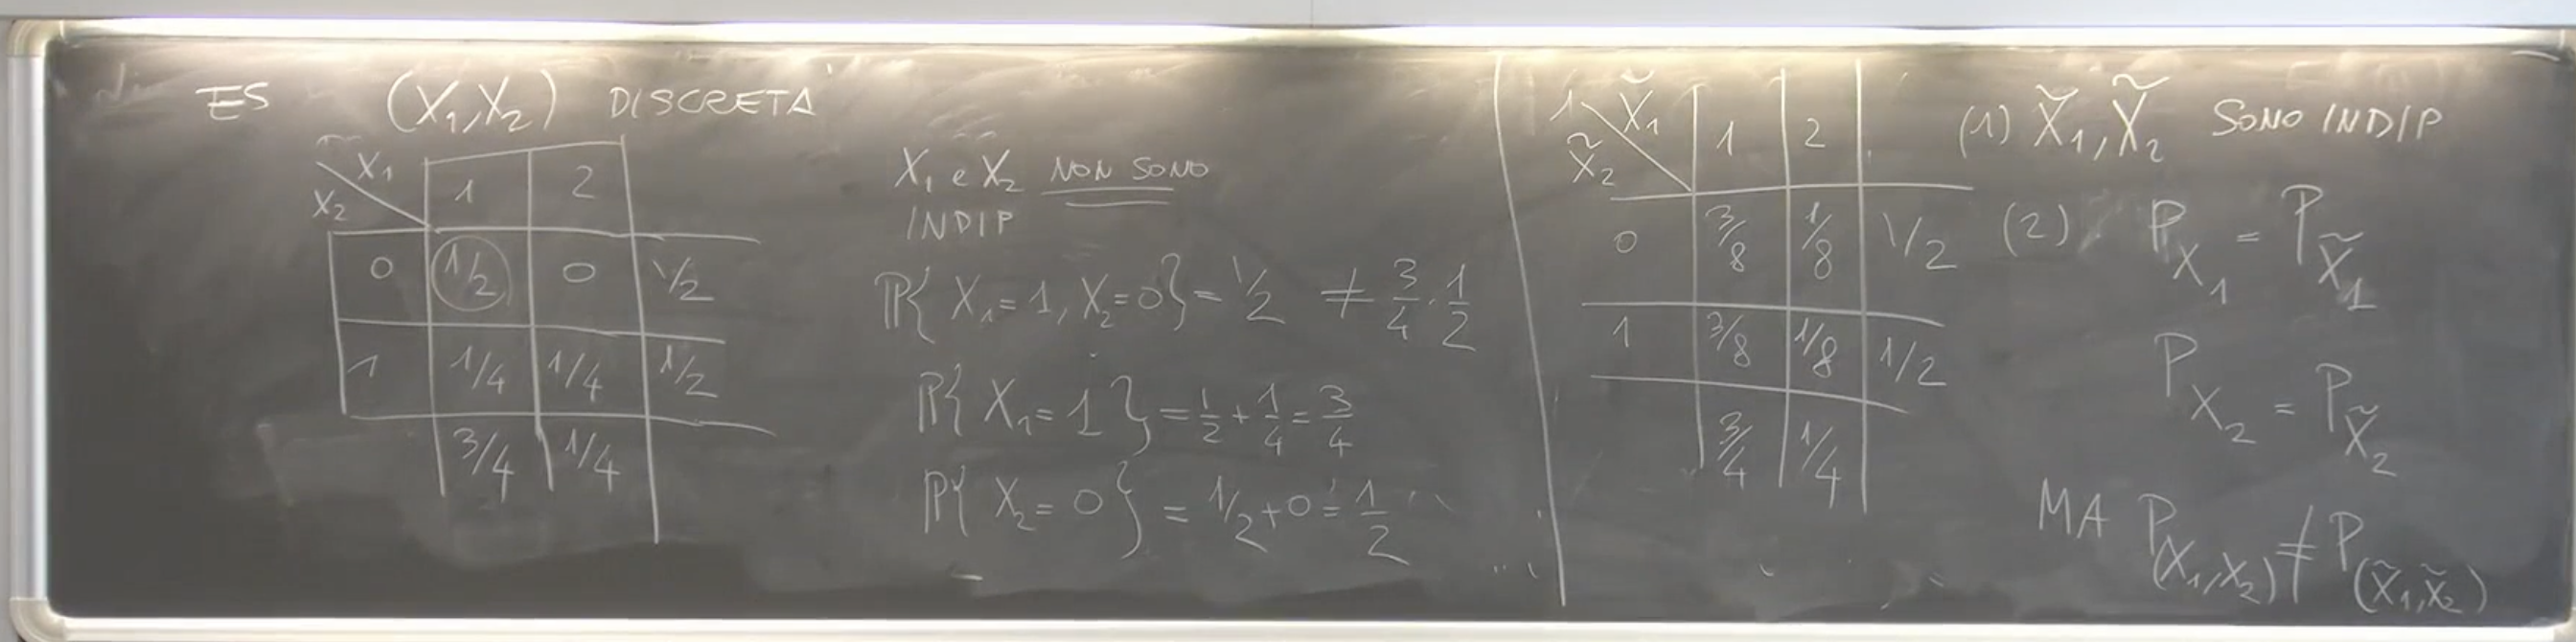 ES (X₁,X₂) DISCRETA
X₁ 1 2
X₂
0 1/2 0 1/2
1 1/4 1/4 1/2
3/4 1/4
X₁ e X₂ NON SONO
INDIP
ℙ{ X₁=1, X₂=0} = 1/2 ≠ 3/4 · 1/2
ℙ{ X₁=1 } = 1/2 + 1/4 = 3/4
ℙ{ X₂=0 } = 1/2 + 0 = 1/2
X̃₁ 1 2
X̃₂
0 3/8 1/8 1/2
1 3/8 1/8 1/2
3/4 1/4
(1) X̃₁, X̃₂ SONO INDIP
(2) P_X₁ = P_X̃₁
P_X₂ = P_X̃₂
MA P_(X₁,X₂) ≠ P_(X̃₁,X̃₂)